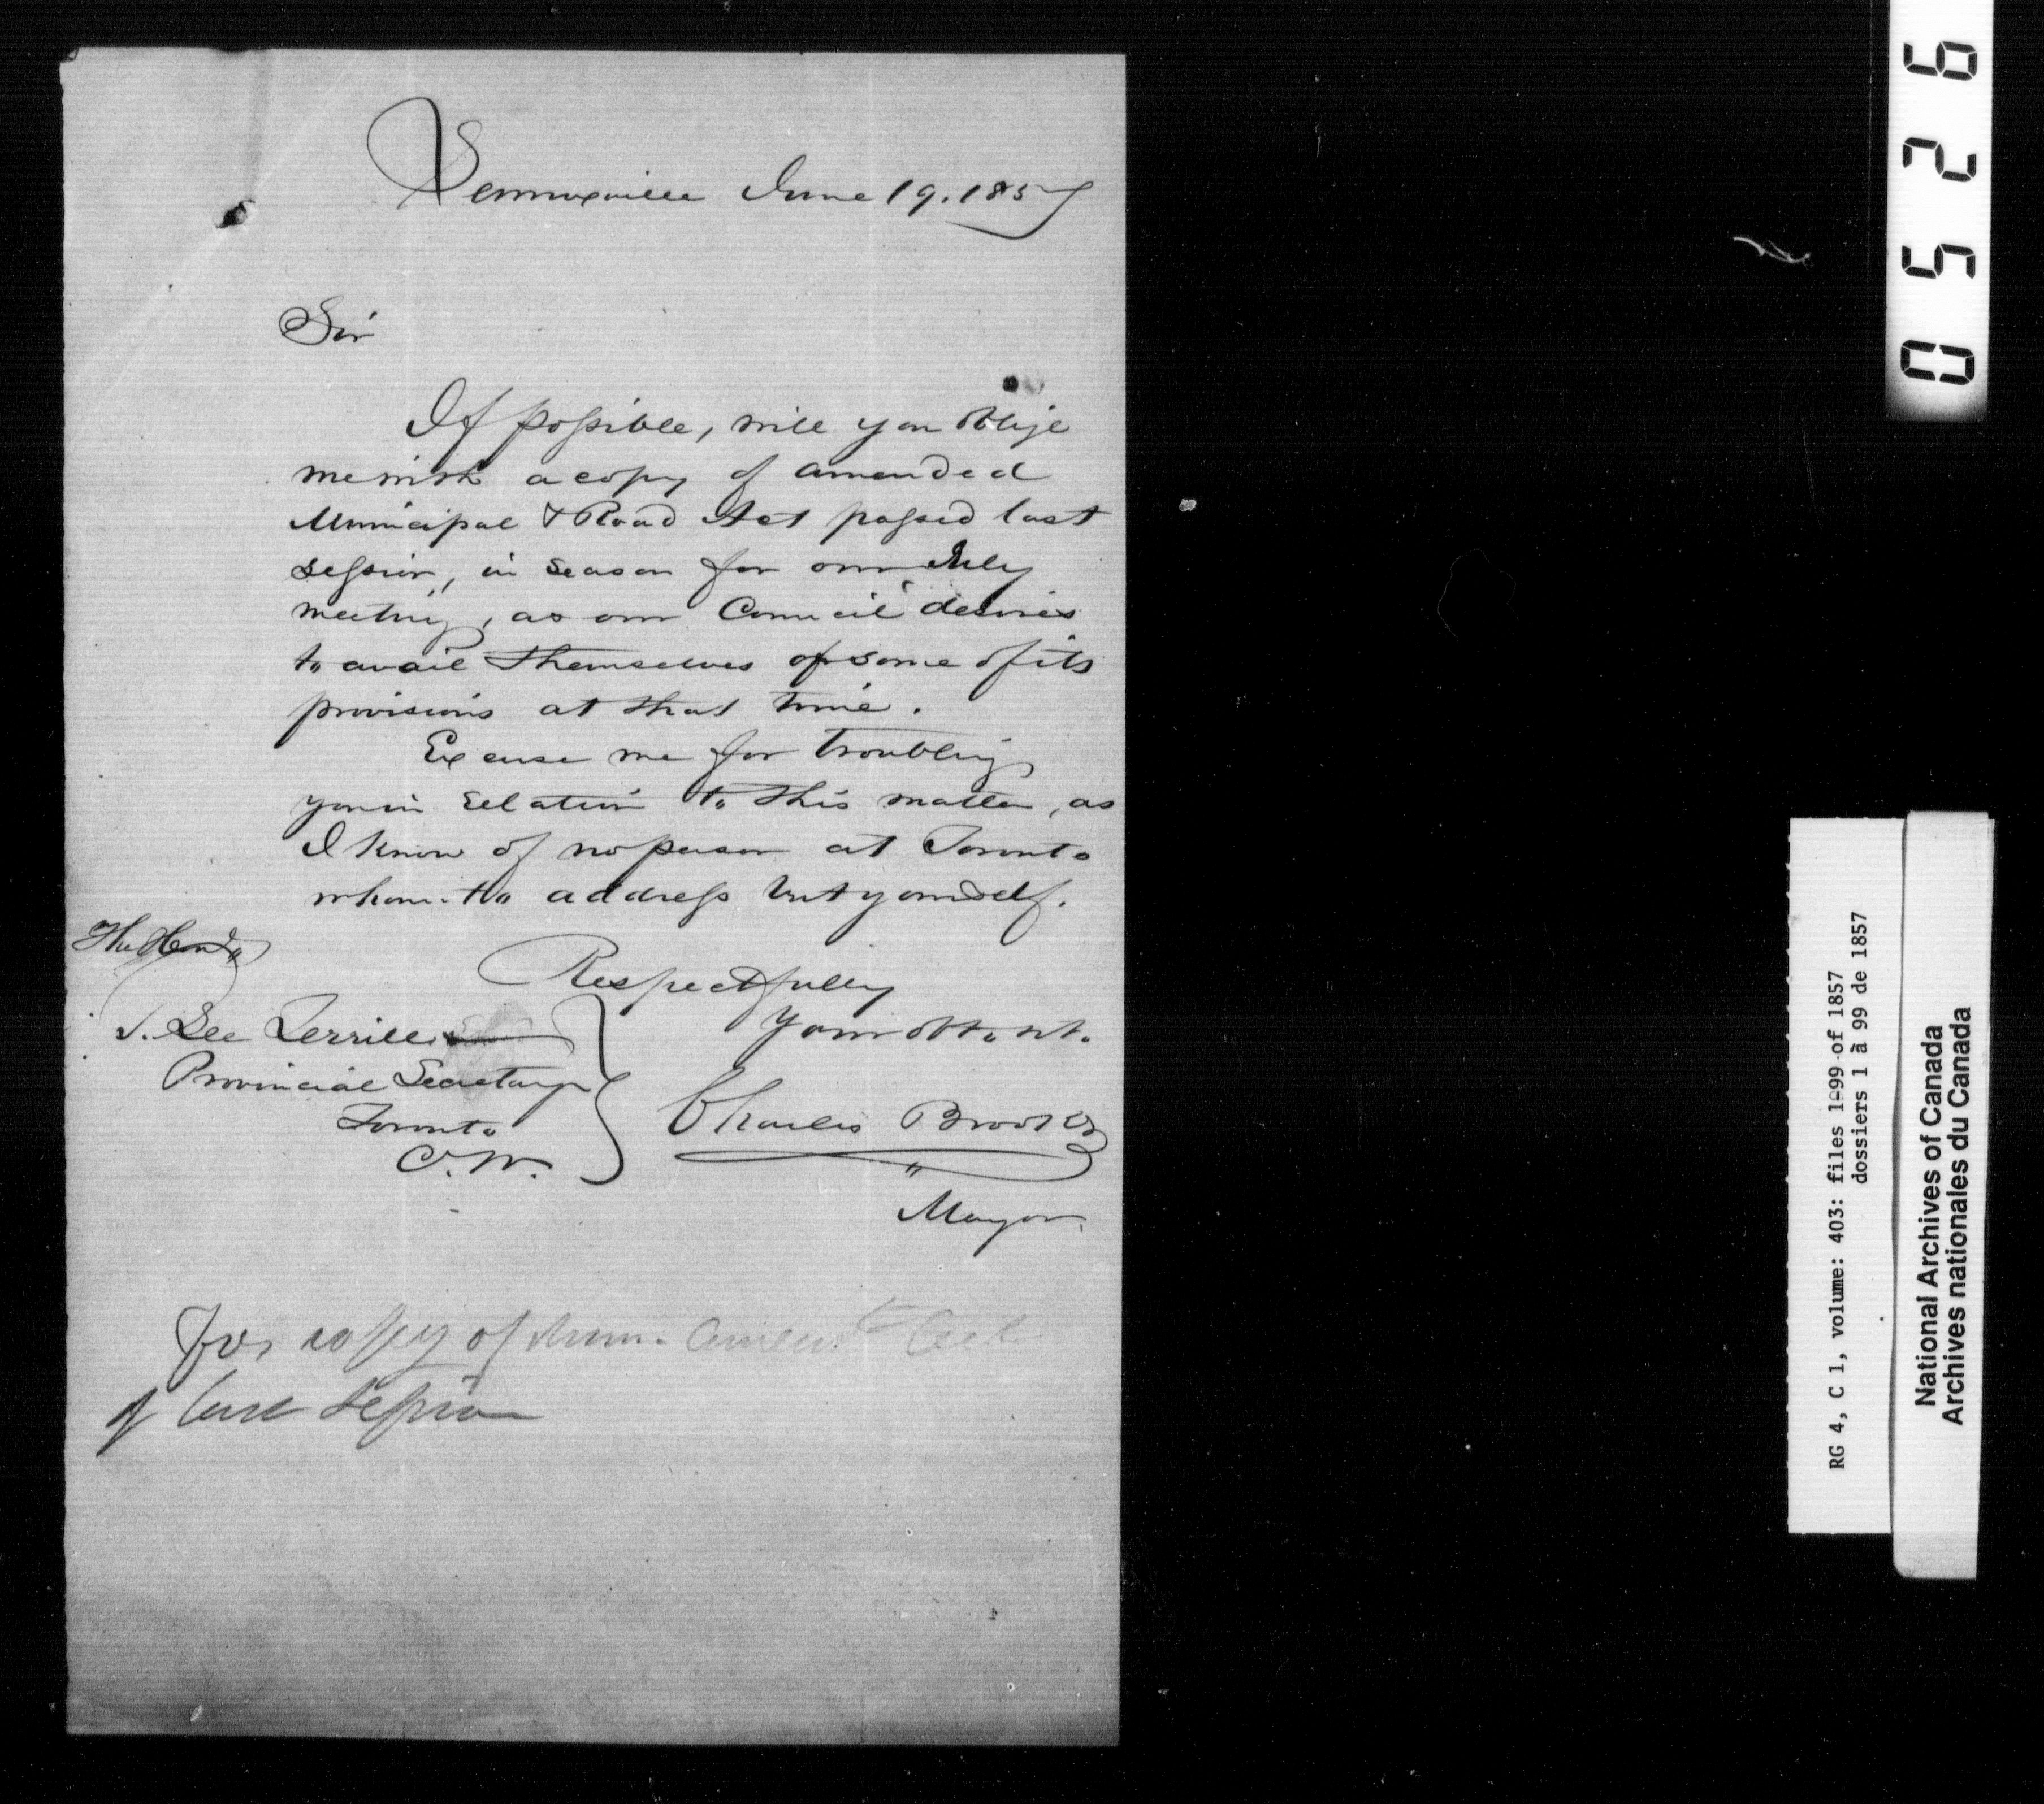 Lennoxville June 19. 1857
Sir
If possible, will you oblige
me with a copy of amended
Municipal & Road Act passed last
session, in season for our July
meeting, as our Council desires
to avail themselves of some of its
provisions at that time.
Excuse me for troubling
you in relation to this matter, as
I know of no person at Toronto
whom to address but yourself.
The Honl
Respectfully
T. Lee Terrill
Your obt. st.
Provincial Secretary
Toronto
C.W.
Charles Brooks
Mayor
For copy of Mun. Amend.t Act
of last Session
0526
RG 4, C 1, volume: 403: files 1-99 of 1857
dossiers 1 à 99 de 1857
National Archives of Canada
Archives nationales du Canada